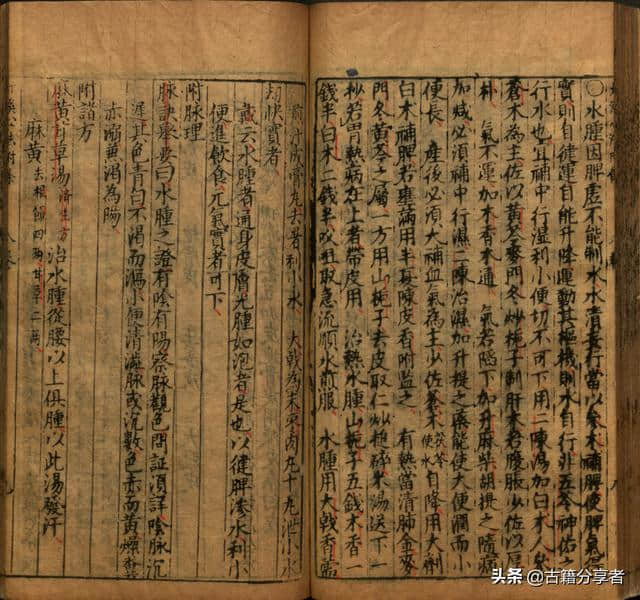 ○水腫因脾虛不能制水水漬妄行當以參朮補脾使脾氣
實則自健運自能升降運動其樞機則水自行非五苓神佑之
行水也宜補中行湿利小便切不可下用二陳湯加白朮人參
蒼朮為主佐以黃芩麥門冬炒梔子制肝木若腹脹少佐以厚
朴　氣不運加木香木通　氣若陷下加升麻柴胡提之隨病
加減必須補中行濕二陳治濕加升提之藥能使大便潤而小
便長　產後必須大補血氣為主少佐蒼朮茯苓使水自降用大劑
白朮補脾若壅滿用半夏陳皮香附監之　有熱當清肺金麥
門冬黃芩之屬一方用山梔子去皮取仁炒搥碎米湯送下一
抄若胃熱病在上者帶皮用　治熱水腫山梔子五錢木香一
錢半白朮二錢半㕮咀取急流順水煎服　水腫用大戟香
煎汁成膏丸去暑利小水　大戟為末棗肉丸十丸泄小水
劫快實者
戴云水腫者通身皮膚光腫如泡者是也以健脾滲水利小
便進飲食元氣實者可下
附脉理
脉訣舉要曰水腫之證有陰有陽察脉觀色問証須詳陰脉沉
遲其色青白不渴而瀉小便清澁脉或沉數色赤而黃燥糞
赤溺兼渴為陽
附諸方
麻黃甘草湯濟生方治水腫從腰以上俱腫以此湯發汗
麻黃去根節四兩甘草二兩
头条 @古籍分享者